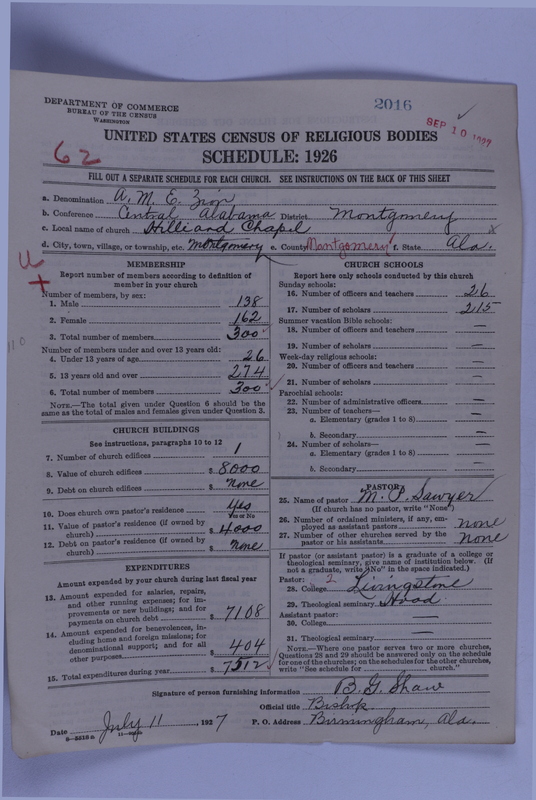 DEPARTMENT OF COMMERCE
BUREAU OF THE CENSUS
WASHINGTON
2016
SEP 10 1927
62
UNITED STATES CENSUS OF RELIGIOUS BODIES
SCHEDULE: 1926
FILL OUT A SEPARATE SCHEDULE FOR EACH CHURCH. SEE INSTRUCTIONS ON THE BACK OF THIS SHEET
a. Denomination A. M. E. Zion
b. Conference Central Alabama District Montgomery
c. Local name of church Hilliard Chapel
d. City, town, village, or township, etc. Montgomery e. County Montgomery f. State Ala.
U
MEMBERSHIP
Report number of members according to definition of
member in your church
Number of members, by sex:
1. Male 138
2. Female 162
3. Total number of members 300
Number of members under and over 13 years old:
4. Under 13 years of age 26
5. 13 years old and over 274
6. Total number of members 300
NOTE.—The total given under Question 6 should be the
same as the total of males and females given under Question 3.
CHURCH BUILDINGS
See instructions, paragraphs 10 to 12
7. Number of church edifices 1
8. Value of church edifices $ 8000
9. Debt on church edifices $ None
10. Does church own pastor's residence? Yes
Yes or No
11. Value of pastor's residence (if owned by
church) $ 4000
12. Debt on pastor's residence (if owned by
church) $ None
EXPENDITURES
Amount expended by your church during last fiscal year
13. Amount expended for salaries, repairs,
and other running expenses; for im-
provements or new buildings; and for
payments on church debt $ 7108
14. Amount expended for benevolences, in-
cluding home and foreign missions; for
denominational support; and for all
other purposes $ 404
15. Total expenditures during year $ 7512
CHURCH SCHOOLS
Report here only schools conducted by this church
Sunday schools:
16. Number of officers and teachers 26
17. Number of scholars 215
Summer vacation Bible schools:
18. Number of officers and teachers —
19. Number of scholars —
Week-day religious schools:
20. Number of officers and teachers —
21. Number of scholars —
Parochial schools:
22. Number of administrative officers —
23. Number of teachers—
a. Elementary (grades 1 to 8) —
b. Secondary —
24. Number of scholars—
a. Elementary (grades 1 to 8) —
b. Secondary —
PASTOR
25. Name of pastor M. P. Sawyer
(If church has no pastor, write "None")
26. Number of ordained ministers, if any, em-
ployed as assistant pastors none
27. Number of other churches served by the
pastor or his assistants None
If pastor (or assistant pastor) is a graduate of a college or
theological seminary, give name of institution below. (If
not a graduate, write "No" in the space indicated.)
Pastor: 2
28. College Livingstone
29. Theological seminary Hood
Assistant pastor:
30. College —
31. Theological seminary —
NOTE.—Where one pastor serves two or more churches,
Questions 28 and 29 should be answered only on the schedule
for one of the churches; on the schedules for the other churches,
write "See schedule for church."
Signature of person furnishing information B. G. Shaw
Official title Bishop
Date July 11, 1927 P. O. Address Birmingham, Ala.